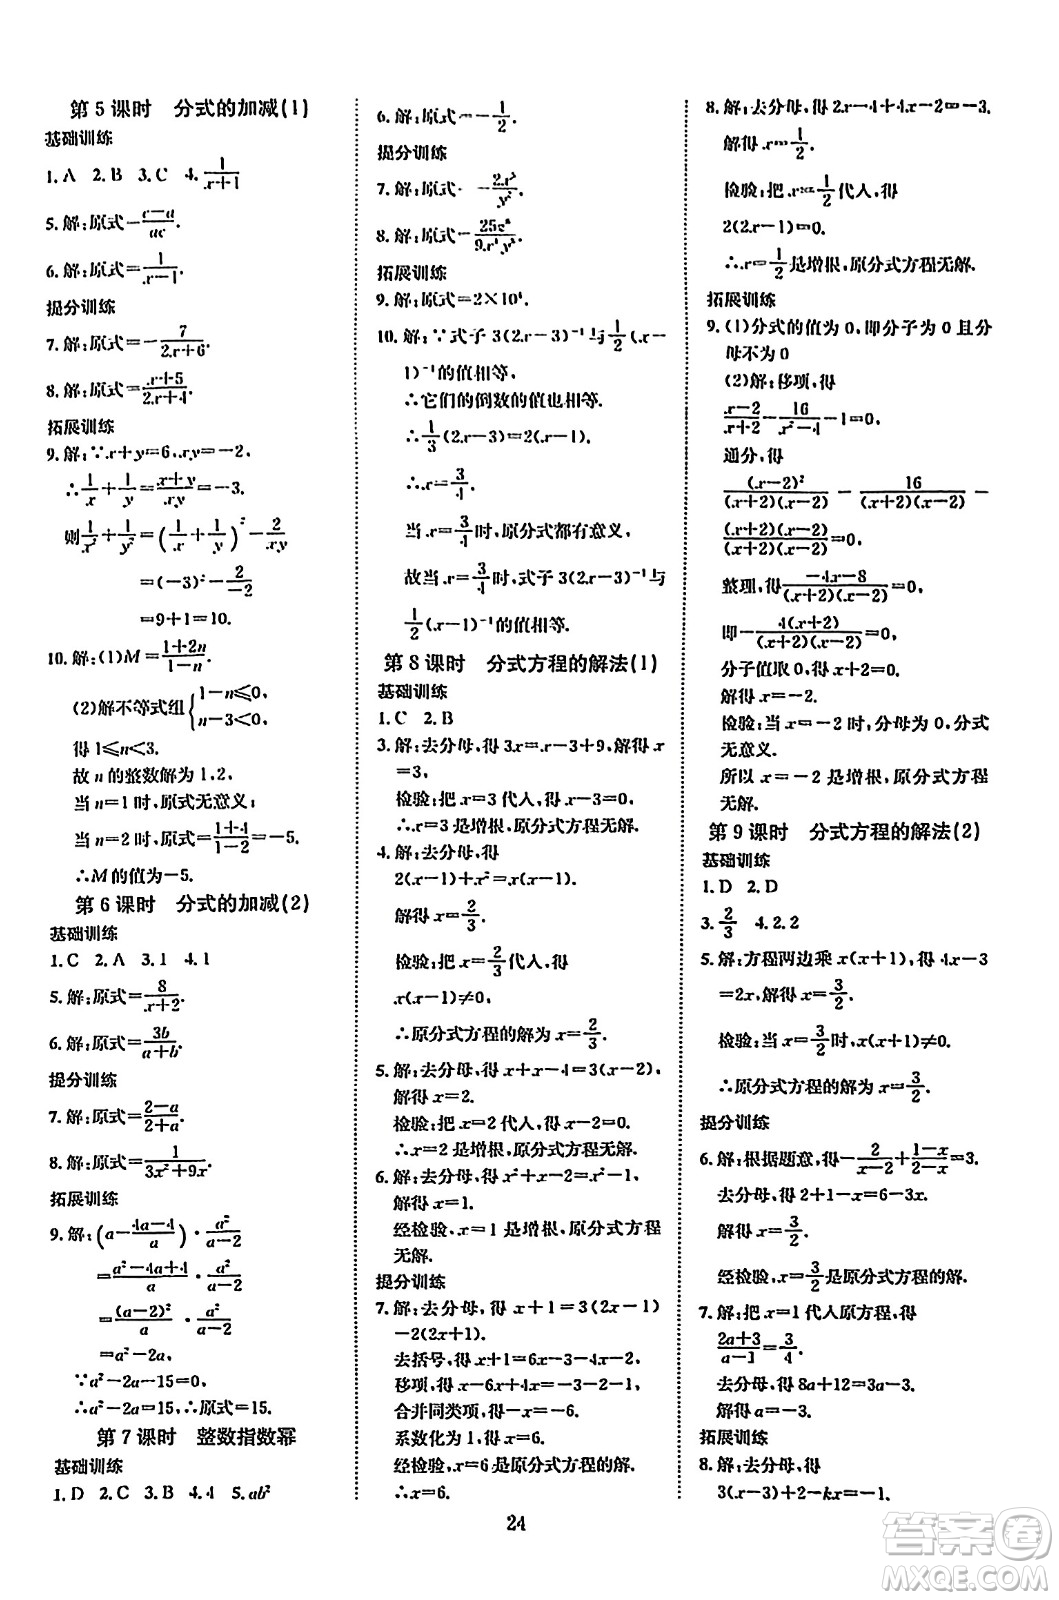 第 5 课时　分式的加减(1)
基础训练
1. A  2. B  3. C  4. 1/(x+1)
5. 解:原式=(c-a)/(ac).
6. 解:原式=1/(x-1)
提分训练
7. 解:原式=-7/(2x+6).
8. 解:原式=(x+5)/(2x+4).
拓展训练
9. 解:∵x+y=6,xy=-2,
∴1/x+1/y=(x+y)/(xy)=-3.
则1/x²+1/y²=(1/x+1/y)²-2/(xy)
=(-3)²-2/(-2)
=9+1=10.
10. 解:(1)M=(1+2n)/(1-n).
(2)解不等式组{1-n≤0, n-3<0,
得 1≤n<3.
故 n 的整数解为 1,2,
当 n=1 时,原式无意义;
当 n=2 时,原式=(1+4)/(1-2)=-5.
∴M 的值为-5.
第 6 课时　分式的加减(2)
基础训练
1. C  2. A  3. 1  4. 1
5. 解:原式=8/(x+2).
6. 解:原式=3b/(a+b).
提分训练
7. 解:原式=(2-a)/(2+a).
8. 解:原式=1/(3x²+9x)
拓展训练
9. 解:(a-(4a-4)/a)·a²/(a-2)
=(a²-4a+4)/a·a²/(a-2)
=(a-2)²/a·a²/(a-2)
=a²-2a,
∵a²-2a-15=0,
∴a²-2a=15,∴原式=15.
第 7 课时　整数指数幂
基础训练
1. D  2. C  3. B  4. 4  5. ab²
6. 解:原式=-1/2.
提分训练
7. 解:原式
8. 解:原式
拓展训练
9. 解:原式=2×10⁴.
10. 解:∵式子 3(2x-3)⁻¹与1/2(x-
1)⁻¹的值相等,
∴它们的倒数的值也相等.
∴1/3(2x-3)=2(x-1).
∴x=3/4.
当 x=3/4时,原分式都有意义,
故当 x=3/4时,式子 3(2x-3)⁻¹与
1/2(x-1)⁻¹的值相等.
第 8 课时　分式方程的解法(1)
基础训练
1. C  2. B
3. 解:去分母,得 3x=x-3+9,解得 x
=3,
检验:把 x=3 代入,得 x(x-3)=0.
∴x=3 是增根,原分式方程无解.
4. 解:去分母,得
2(x-1)+x²=x(x-1),
解得 x=2/3.
检验:把 x=2/3代入,得
x(x-1)≠0,
∴原分式方程的解为 x=2/3.
5. 解:去分母,得 x+x-4=3(x-2),
解得 x=2.
检验:把 x=2 代入,得 x-2=0,
∴x=2 是增根,原分式方程无解.
6. 解:去分母,得 x²+x-2=x²-1,
解得 x=1.
经检验,得 x=1 是增根,原分式方程
无解.
提分训练
7. 解:去分母,得 x+1=3(2x-1)
-2(2x+1).
去括号,得 x+1=6x-3-4x-2.
移项,得 x-6x+4x=-3-2-1.
合并同类项,得-x=-6.
系数化为 1,得 x=6.
经检验,x=6 是原分式方程的解.
∴x=6.
8. 解:去分母,得 2x-4+4x-2=-3.
解得 x=1/2.
检验:把 x=1/2代入,得
2(2x-1)=0.
∴x=1/2是增根,原分式方程无解.
拓展训练
9. (1)分式的值为 0,即分子为 0 且分
母不为 0
(2)解:移项,得
(x-2)/(x+2)-16/(x²-4)-1=0,
通分,得
(x-2)²/((x+2)(x-2))-16/((x+2)(x-2))-
((x+2)(x-2))/((x+2)(x-2))=0,
整理,得(-4x-8)/((x+2)(x-2))=0,
即-4(x+2)/((x+2)(x-2))=0,
分子值取 0,得 x+2=0,
解得 x=-2,
检验:当 x=-2 时,分母为 0,分式
无意义.
所以 x=-2 是增根,原分式方程
无解.
第 9 课时　分式方程的解法(2)
基础训练
1. D  2. D
3. 2/3  4. 2.2
5. 解:方程两边乘 x(x+1),得 4x-3
=2x,解得 x=3/2.
检验:当 x=3/2时,x(x+1)≠0,
∴原分式方程的解为 x=3/2.
提分训练
6. 解:根据题意,得-2/(x-2)+(1-x)/(2-x)=3.
去分母,得 2+1-x=6-3x.
解得 x=3/2.
经检验,x=3/2是原分式方程的解.
7. 解:把 x=1 代入原方程,得
(2a+3)/(a-1)=3/4.
去分母,得 8a+12=3a-3.
解得 a=-3.
拓展训练
8. 解:去分母,得
3(x-3)+2-kx=-1.
24
答案圈
MXQE.COM